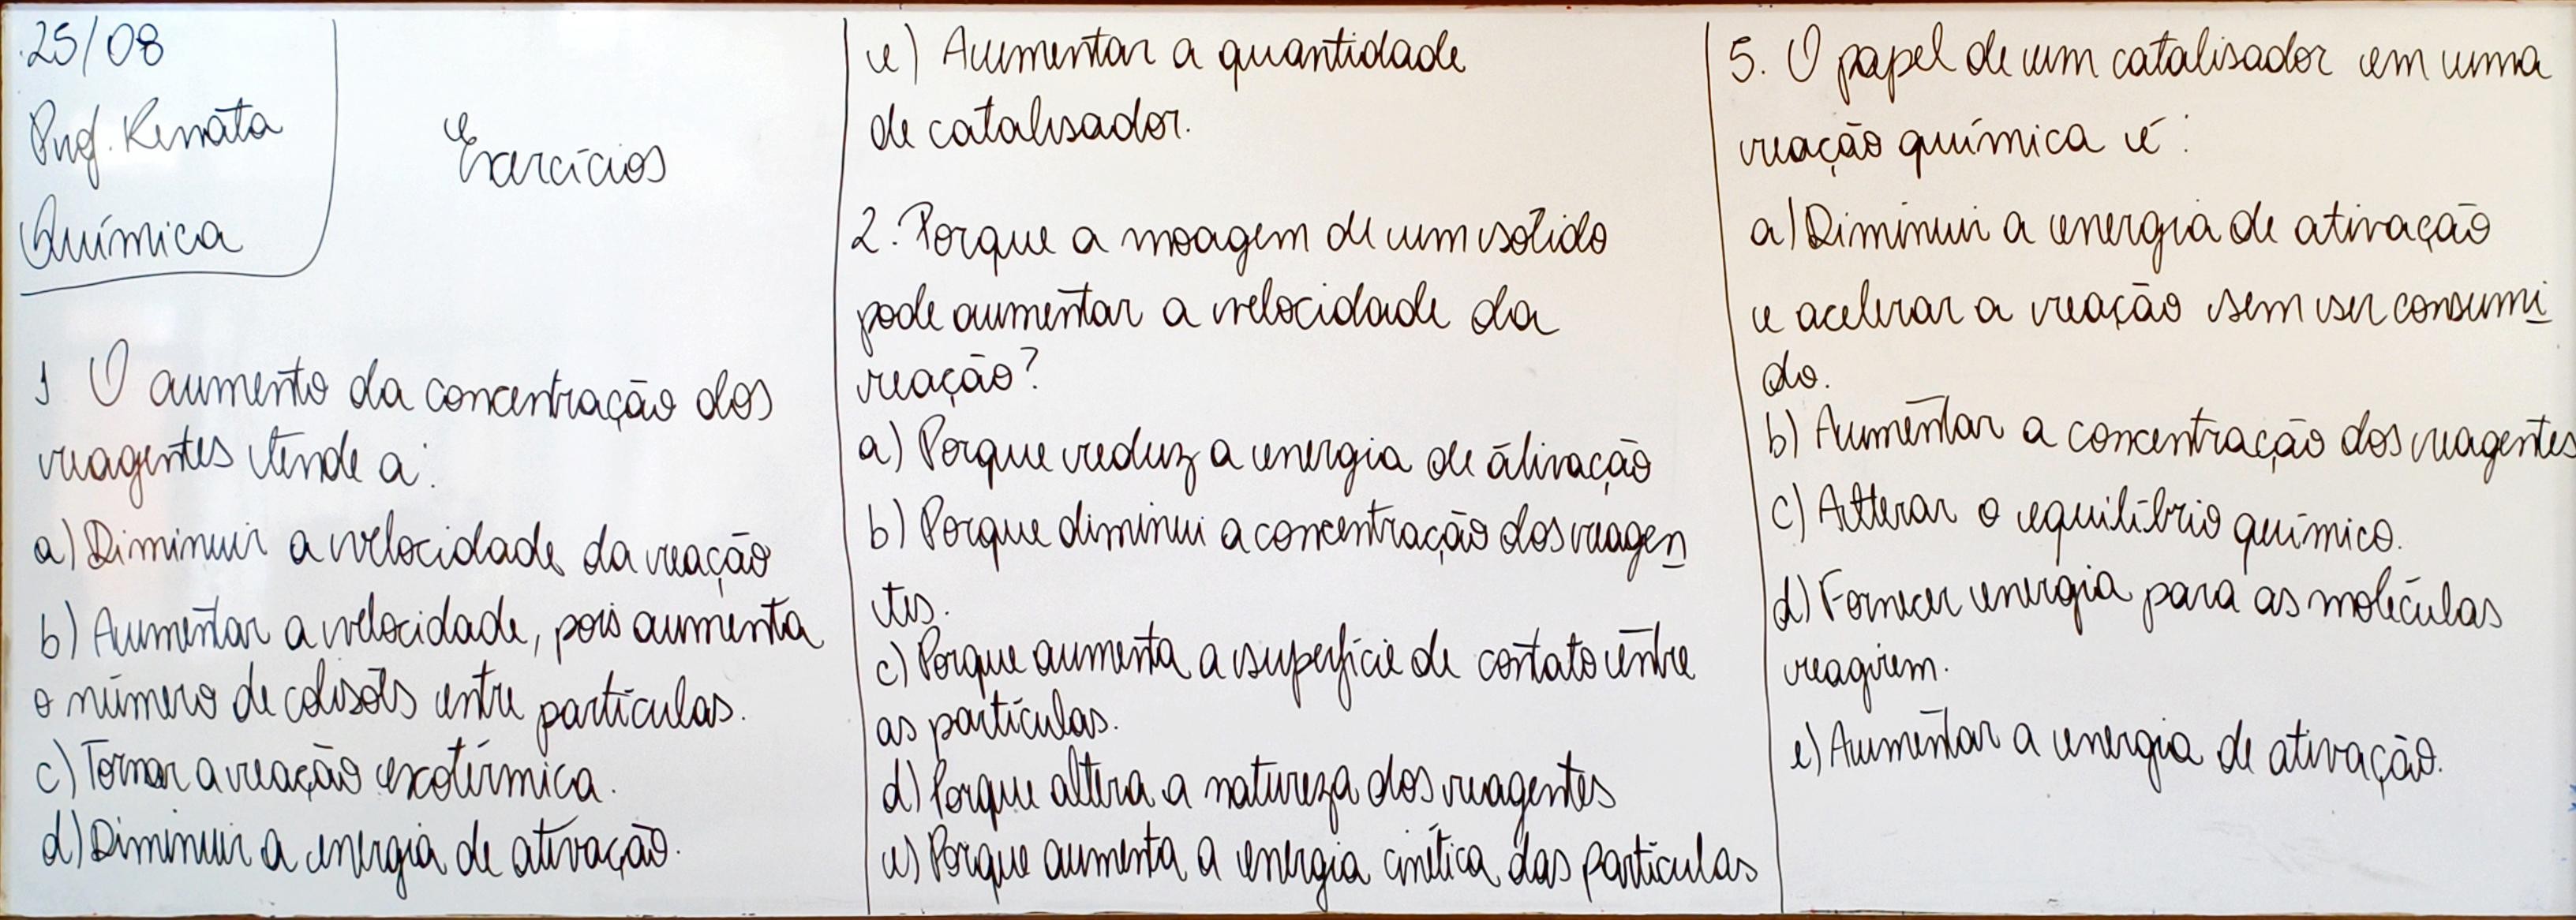 25/08
Prof. Renata
Química
Exercícios
1 O aumento da concentração dos
reagentes tende a:
a) Diminuir a velocidade da reação
b) Aumentar a velocidade, pois aumenta
o número de colisões entre partículas.
c) Tornar a reação exotérmica.
d) Diminuir a energia de ativação.
e) Aumentar a quantidade
de catalisador.
2. Porque a moagem de um sólido
pode aumentar a velocidade da
reação?
a) Porque reduz a energia de ativação
b) Porque diminui a concentração dos reagen
tes.
c) Porque aumenta a superfície de contato entre
as partículas.
d) Porque altera a natureza dos reagentes
e) Porque aumenta a energia cinética das partículas
5. O papel de um catalisador em uma
reação química é:
a) Diminuir a energia de ativação
e acelerar a reação sem ser consumi
do.
b) Aumentar a concentração dos reagentes
c) Alterar o equilíbrio químico.
d) Fornecer energia para as moléculas
reagirem.
e) Aumentar a energia de ativação.